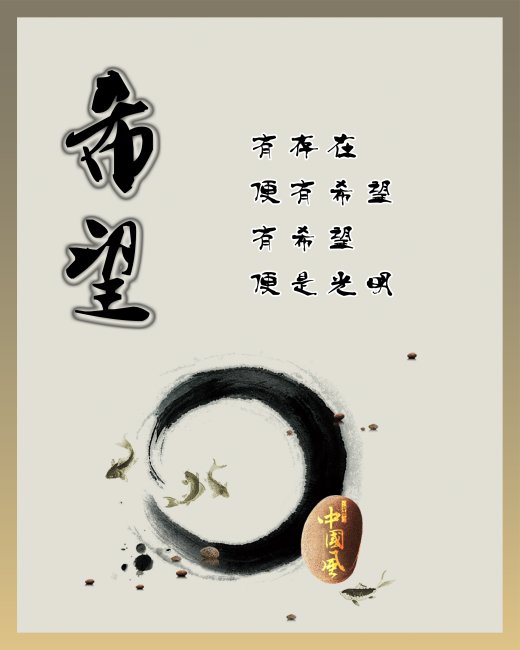 希望
有存在
便有希望
有希望
便是光明
中國風